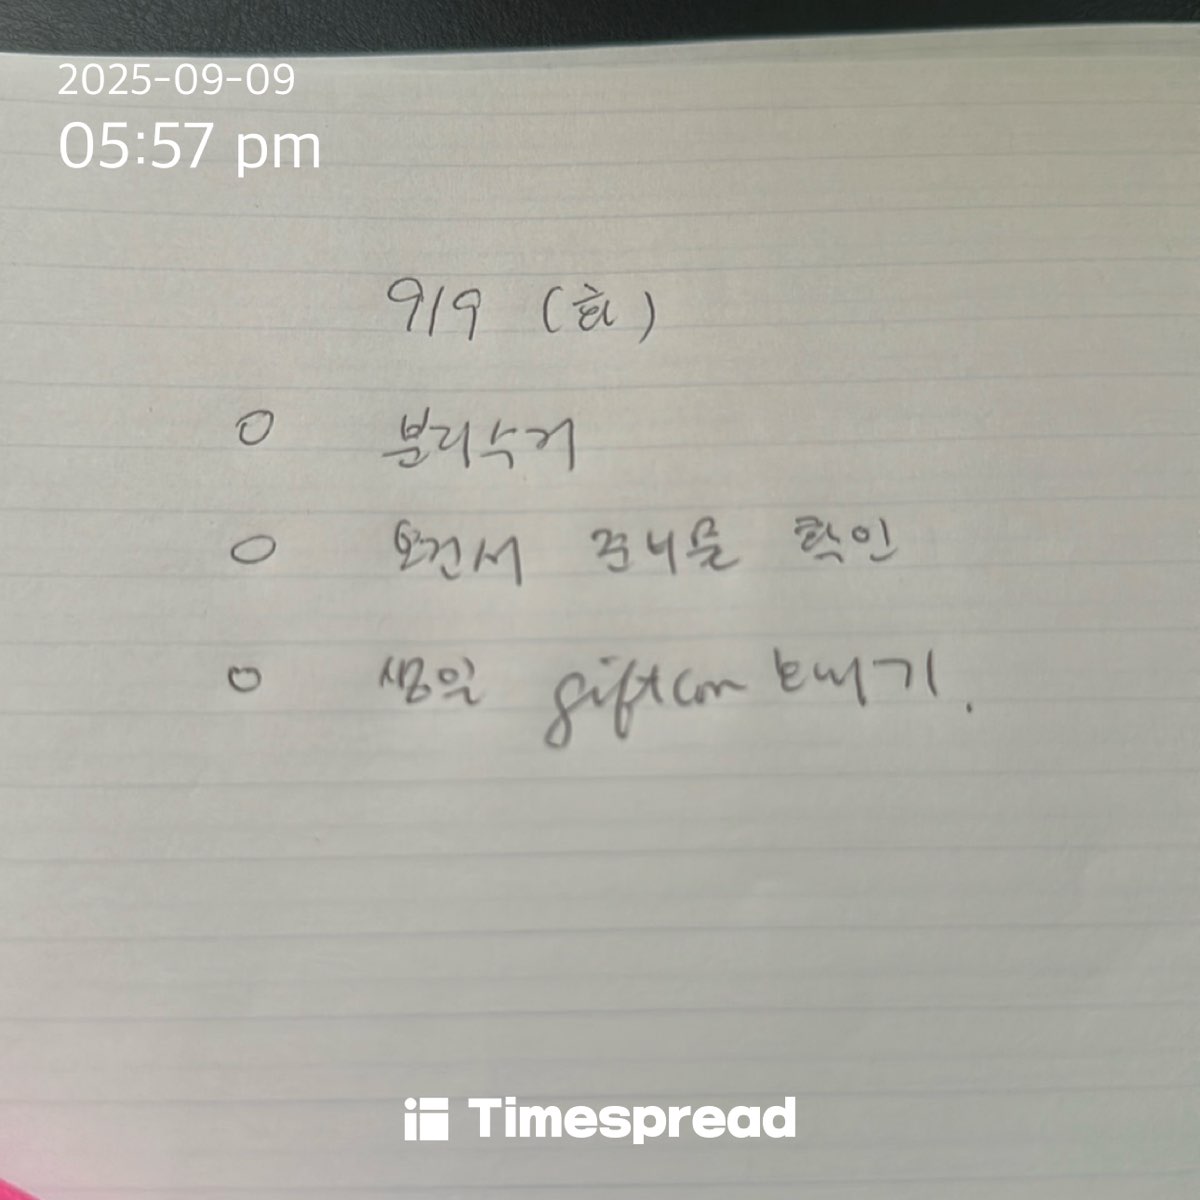 2025-09-09
05:57 pm
9/9 (화)
분리수거
준비물 확인
생일 giftcon 보내기.
Timespread